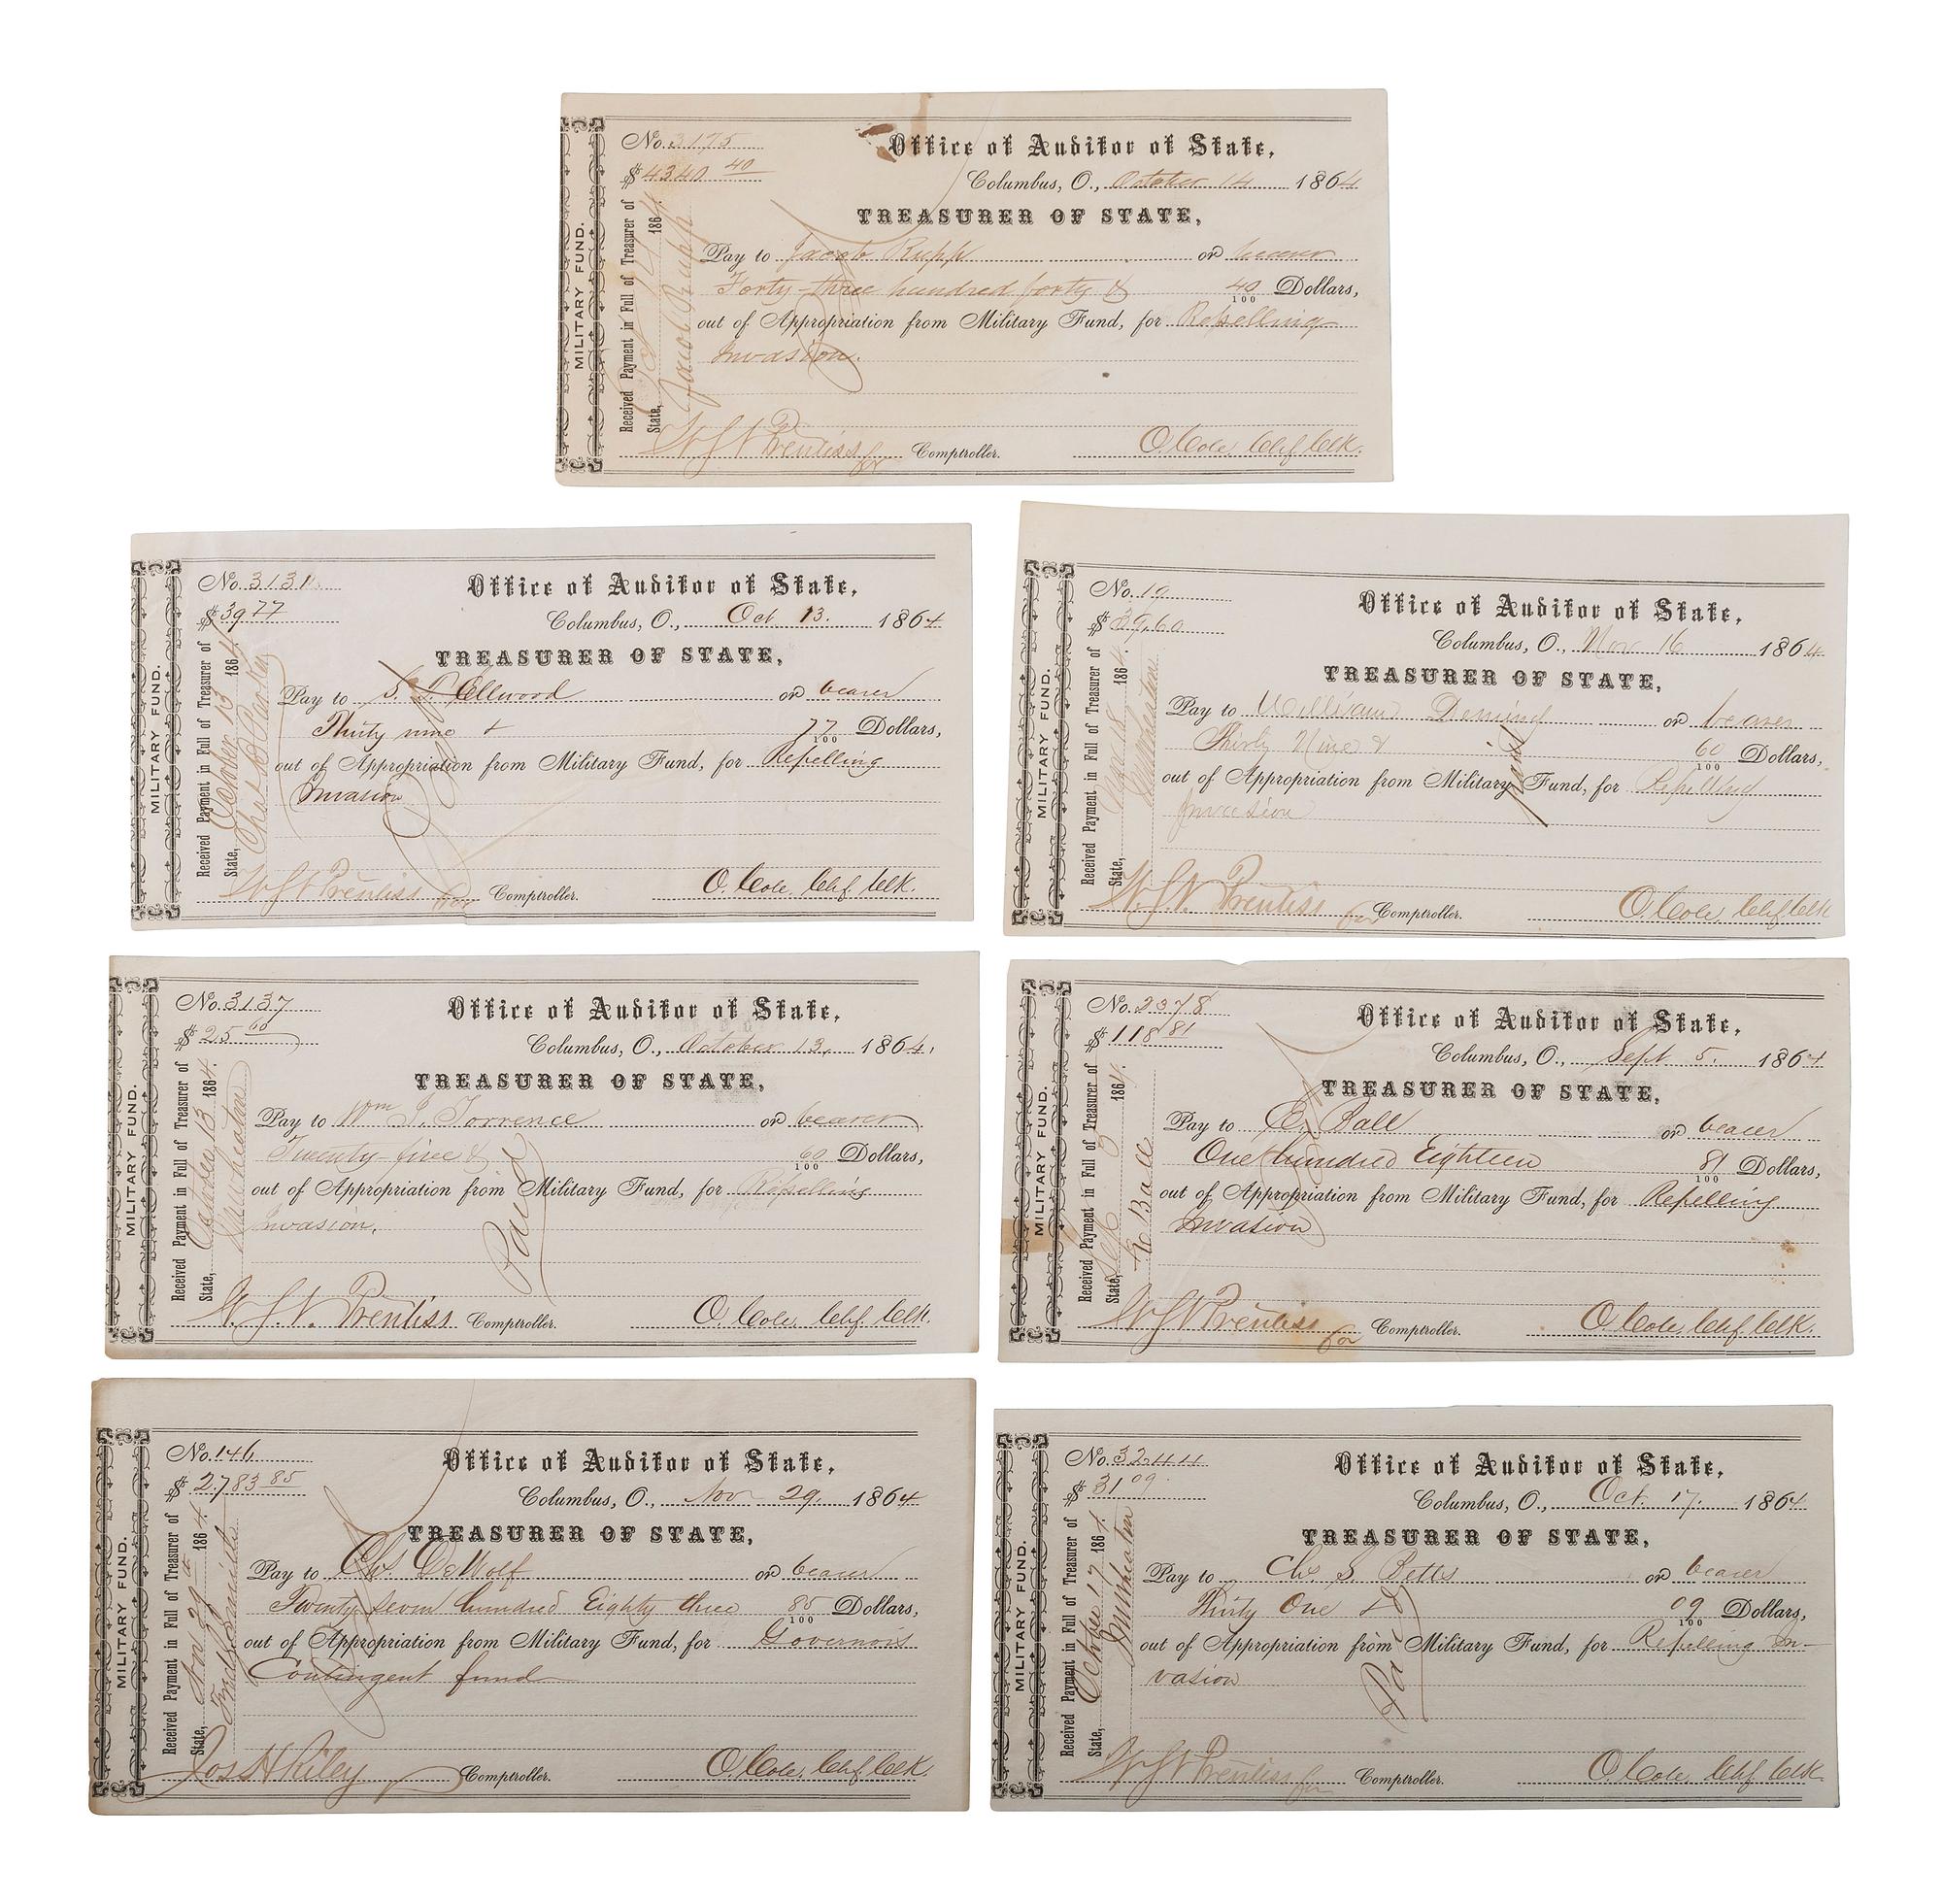 MILITARY FUND.
Received Payment in Full of Treasurer of
State, Oct 14 1864.
Jacob Rupp
No. 3175
$ 4340 40
Office of Auditor of State,
Columbus, O., October 14 1864
TREASURER OF STATE,
Pay to Jacob Rupp or bearer
Forty-three hundred forty & 40/100 Dollars,
out of Appropriation from Military Fund, for Repelling
Invasion.
W.S.V. Prentiss for Comptroller. O. Cole, Chf Clk.
MILITARY FUND.
Received Payment in Full of Treasurer of
State, October 13 1864
No. 3131
$ 39 77
Office of Auditor of State,
Columbus, O., Oct 13. 1864
TREASURER OF STATE,
Pay to Ellwood or bearer
Thirty nine & 77/100 Dollars,
out of Appropriation from Military Fund, for Repelling
Invasion
W.S.V. Prentiss for Comptroller. O. Cole, Chf Clk.
MILITARY FUND.
Received Payment in Full of Treasurer of
State, 18 1864
No. 10
$ 39,60
Office of Auditor of State,
Columbus, O., Nov 16 1864
TREASURER OF STATE,
Pay to William Deming or bearer
Thirty Nine & 60/100 Dollars,
out of Appropriation from Military Fund, for Repelling
Invasion
Paid
W.S.V. Prentiss for Comptroller. O. Cole, Chf Clk
MILITARY FUND.
Received Payment in Full of Treasurer of
State, October 13 1864.
No. 3137
$ 25 60
Office of Auditor of State,
Columbus, O., October 13, 1864.
TREASURER OF STATE,
Pay to Wm J. Torrence or bearer
Twenty-five & 60/100 Dollars,
out of Appropriation from Military Fund, for Repelling
Invasion.
Paid
W.S.V. Prentiss Comptroller. O. Cole, Chf Clk.
MILITARY FUND.
Received Payment in Full of Treasurer of
State, Sept 1864.
E Ball
No. 2378
$ 118 81
Office of Auditor of State,
Columbus, O., Sept 5. 1864
TREASURER OF STATE,
Pay to E. Ball or bearer
One hundred Eighteen 81/100 Dollars,
out of Appropriation from Military Fund, for Repelling
Invasion
W.S.V. Prentiss for Comptroller. O. Cole, Chf Clk.
MILITARY FUND.
Received Payment in Full of Treasurer of
State, Nov 29th 1864.
No. 146
$ 2783 85
Office of Auditor of State,
Columbus, O., Nov 29. 1864
TREASURER OF STATE,
Pay to Chs DeWolf or bearer
Twenty seven hundred Eighty three 85/100 Dollars,
out of Appropriation from Military Fund, for Governors
Contingent fund
Jos H Riley Comptroller. O. Cole, Chf Clk.
MILITARY FUND.
Received Payment in Full of Treasurer of
State, 17 1864.
No. 3244
$ 31 09
Office of Auditor of State,
Columbus, O., Oct. 17. 1864
TREASURER OF STATE,
Pay to Chs S. Betts or bearer
Thirty One & 09/100 Dollars,
out of Appropriation from Military Fund, for Repelling In-
vasion
Paid
W.S.V. Prentiss for Comptroller. O. Cole, Chf Clk.